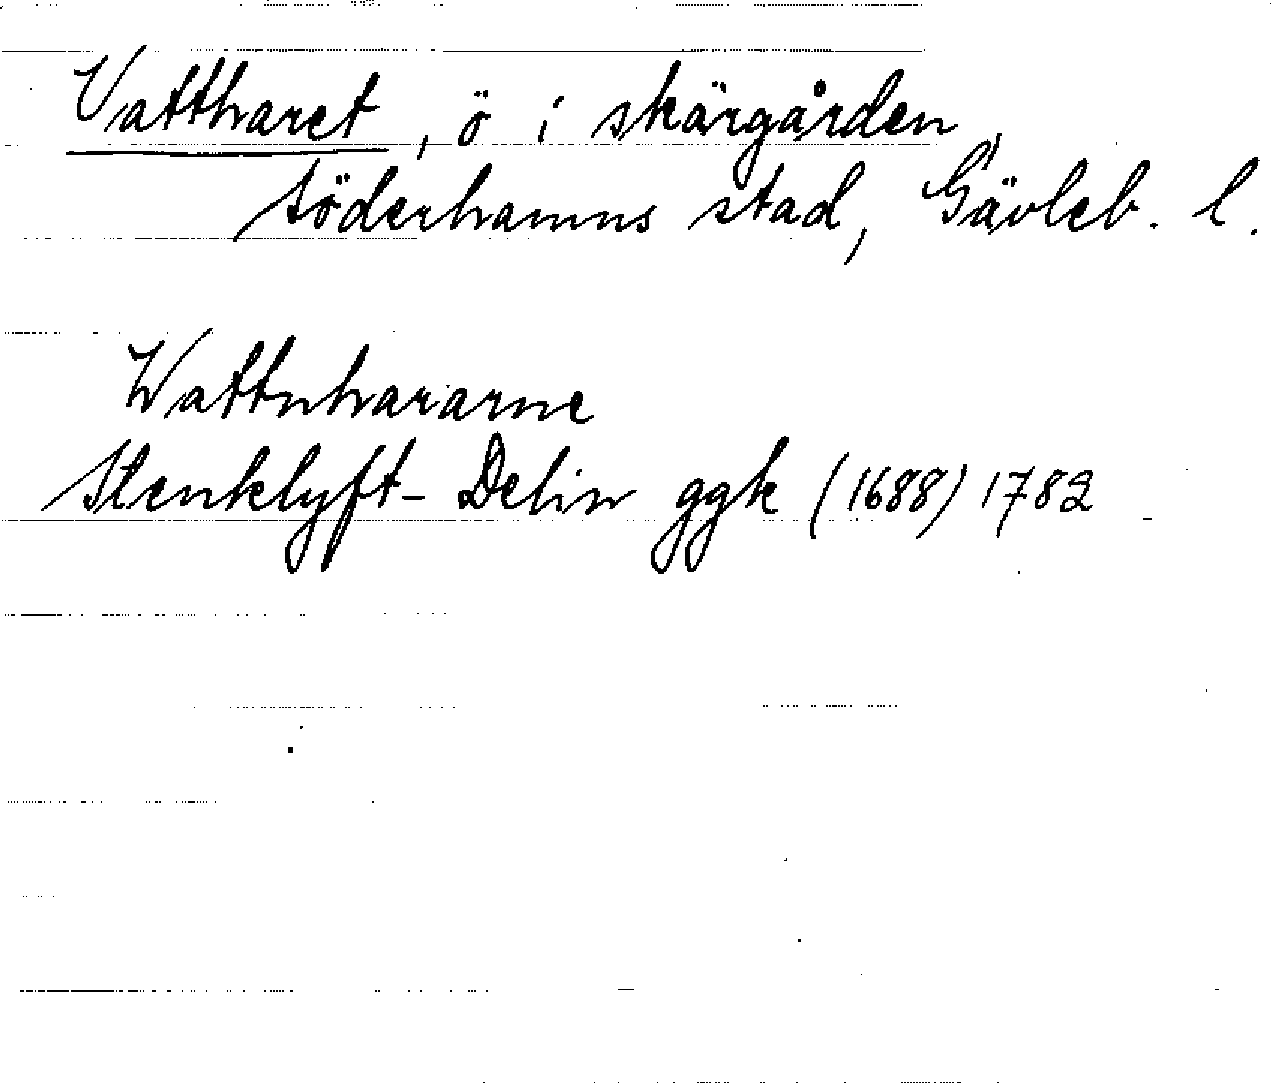 Vattharet, ö i skärgården,
Söderhamns stad, Gävleb. l.
Wattnhararne
Stenklyft-Delin ggk (1688) 1782